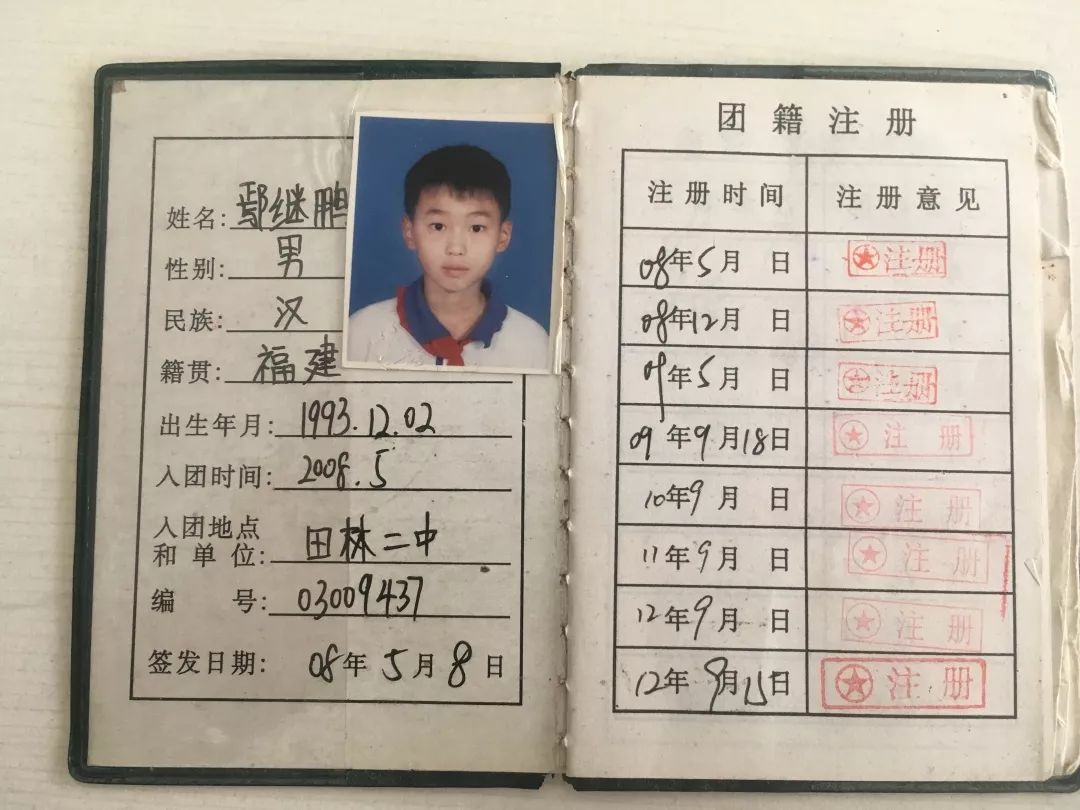 姓名: 鄢继鹏
性别: 男
民族: 汉
籍贯: 福建
出生年月: 1993.12.02
入团时间: 2008.5
入团地点
和单位: 田林二中
编 号: 03009437
签发日期: 08年5月8日
团籍注册
注册时间 注册意见
08年5月 日 注册
08年12月 日 注册
09年5月 日 注册
09年9月18日 注册
10年9月 日 注册
11年9月 日 注册
12年9月 日 注册
12年9月15日 注册